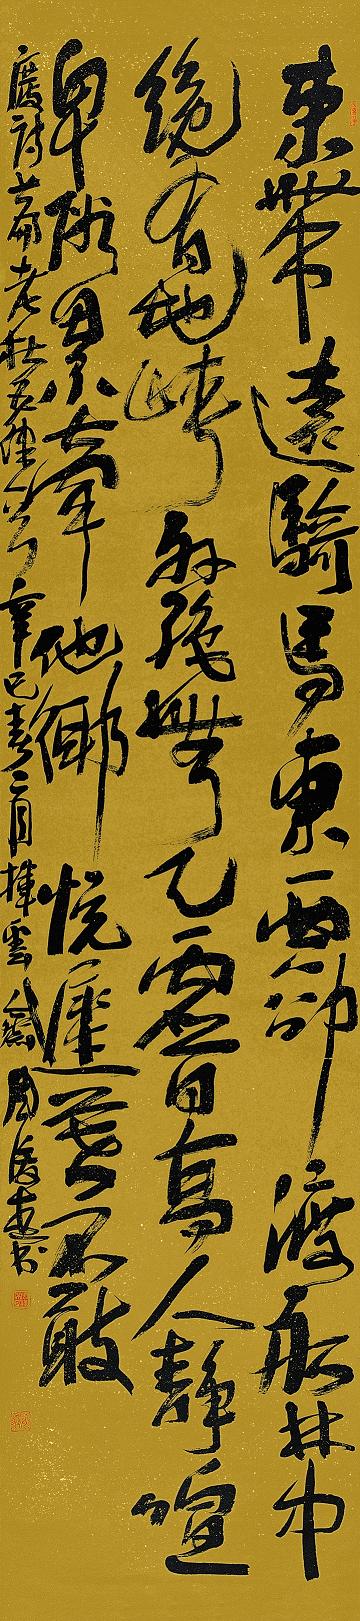 束帶還騎馬東西卻渡船林中
纔有地峽外絕無天虛白高人靜喧
卑俗累牽他鄉悅遲暮不敢
廢詩篇老杜五律 辛巳春二月揮雲齋周俊杰书